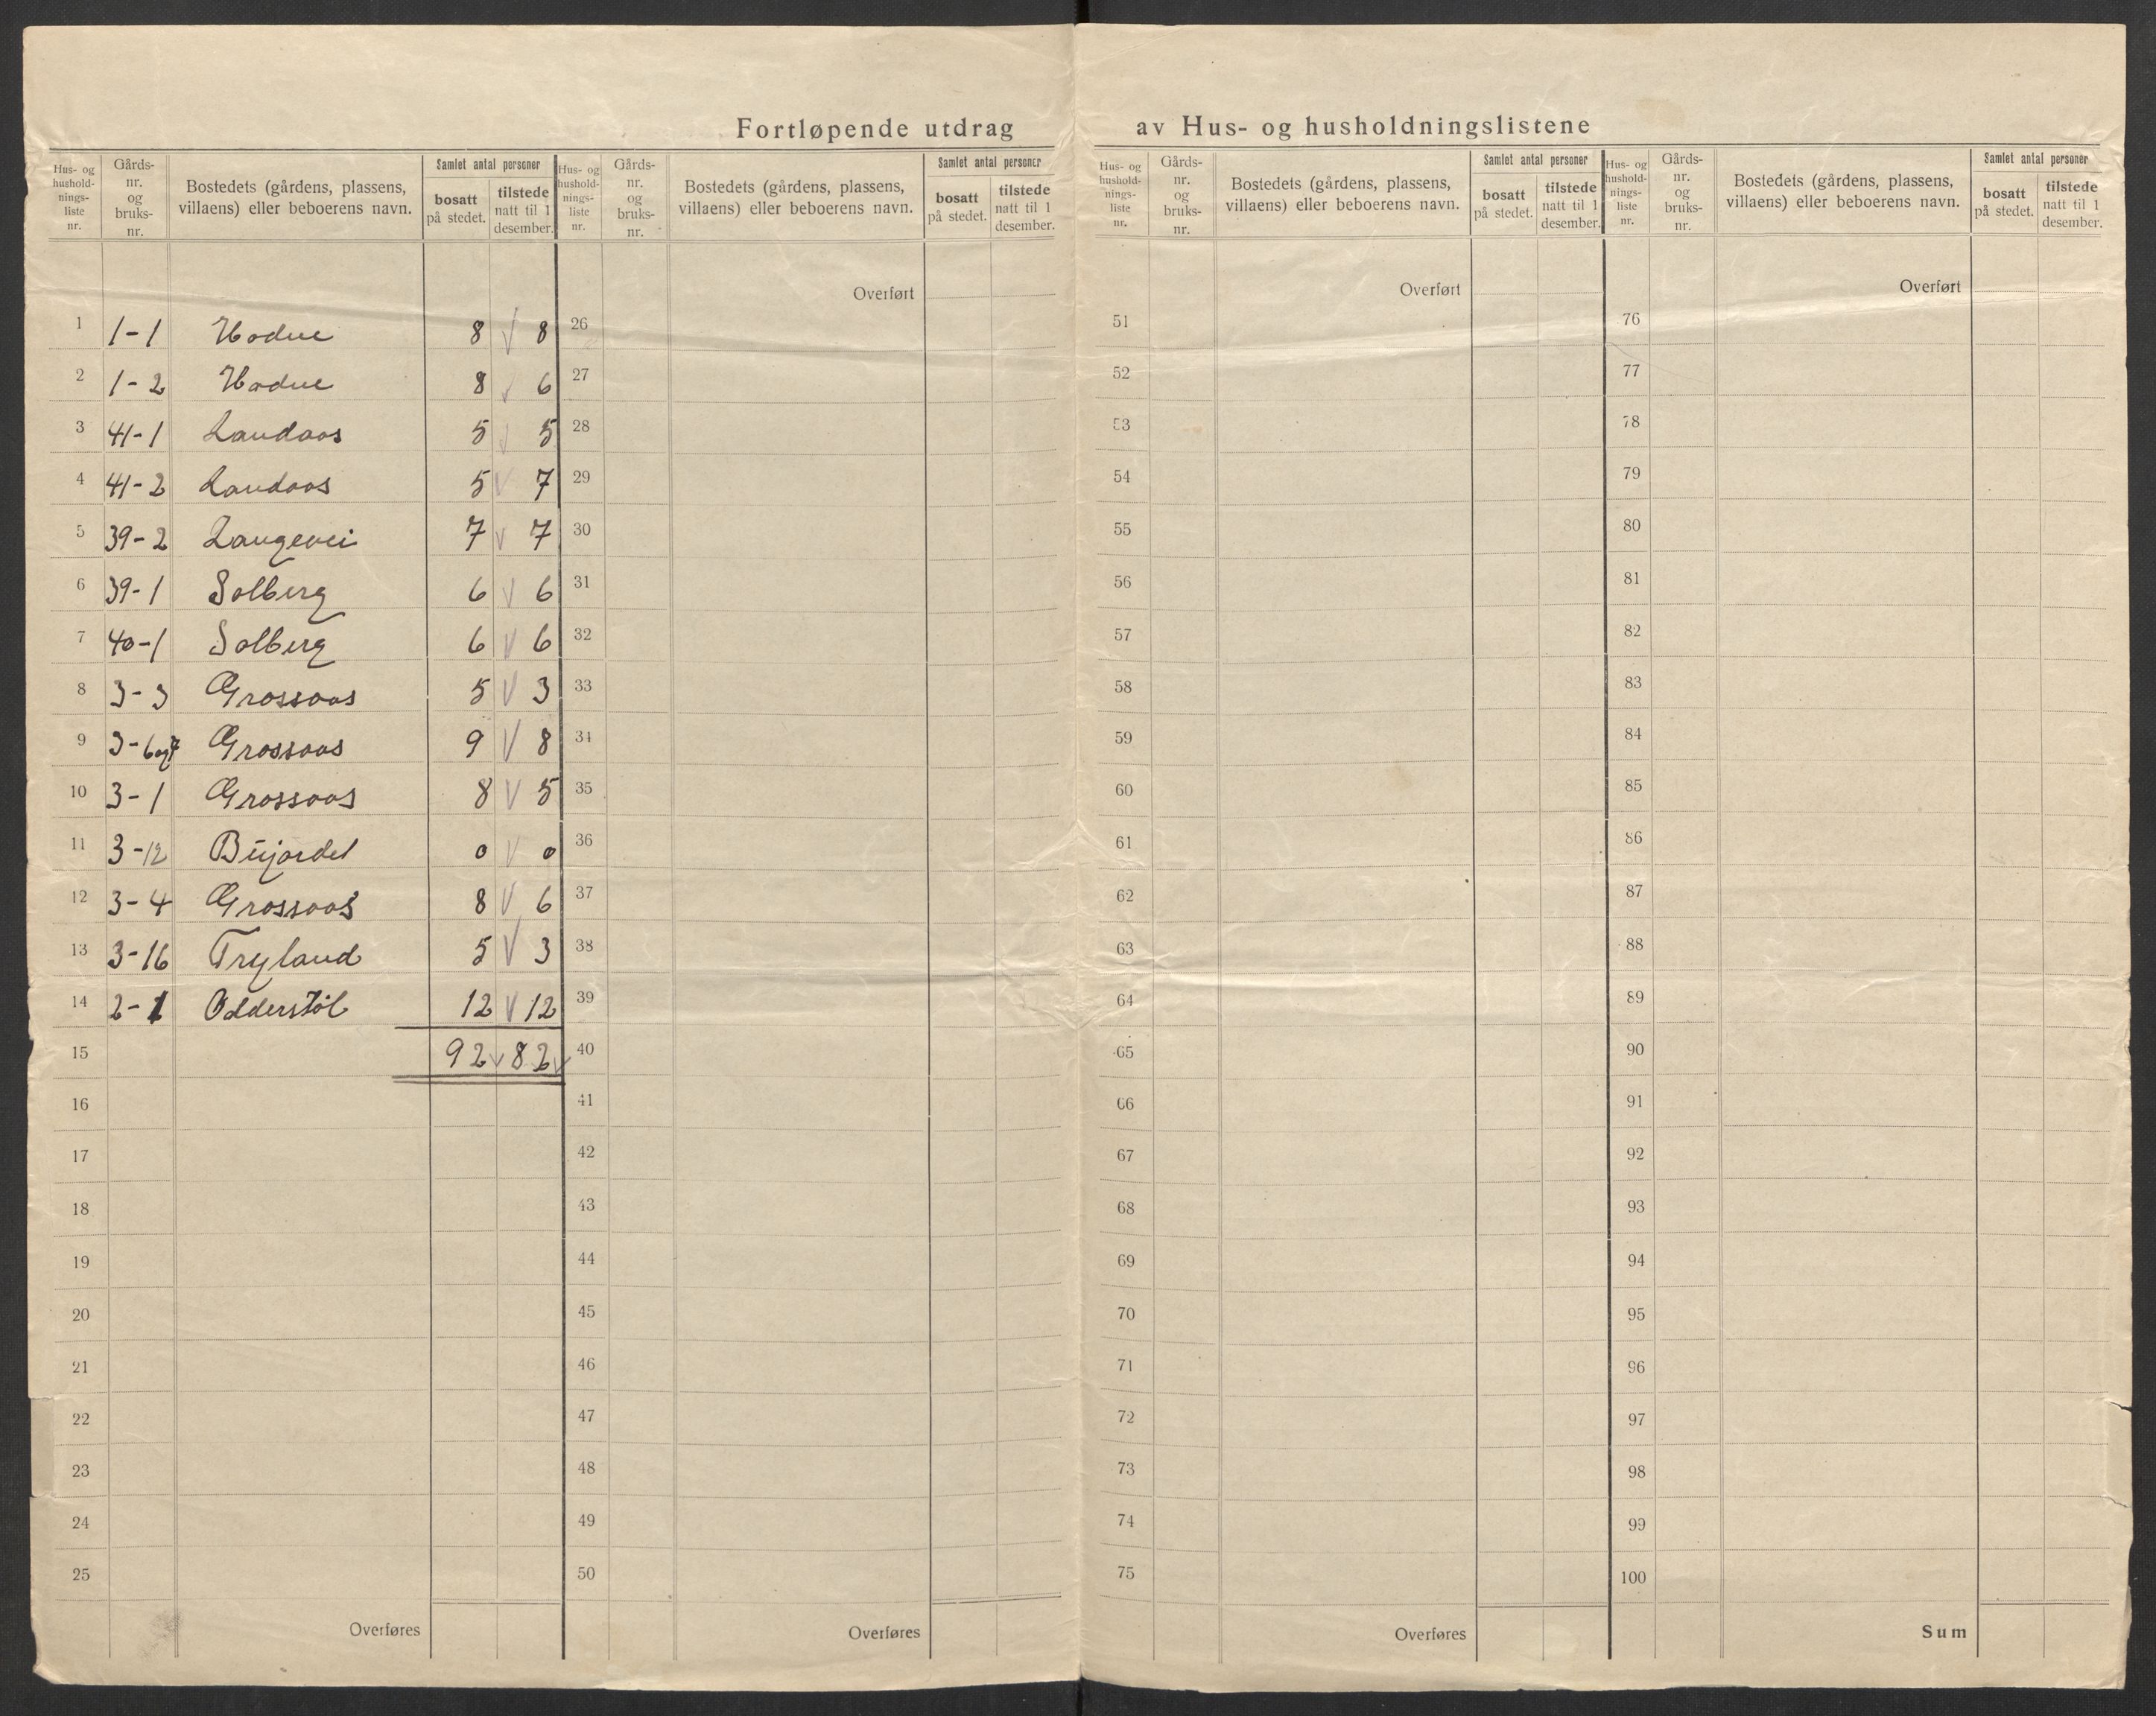 Fortløpende utdrag av Hus- og husholdningslistene
Hus- og hushold- nings- liste nr. Gårds- nr. og bruks- nr. Bostedets (gårdens, plassens, villaens) eller beboerens navn. Samlet antal personer bosatt på stedet. tilstede natt til 1 desember.
Hus- og hushold- nings- liste nr. Gårds- nr. og bruks- nr. Bostedets (gårdens, plassens, villaens) eller beboerens navn. Samlet antal personer bosatt på stedet. tilstede natt til 1 desember.
Hus- og hushold- nings- liste nr. Gårds- nr. og bruks- nr. Bostedets (gårdens, plassens, villaens) eller beboerens navn. Samlet antal personer bosatt på stedet. tilstede natt til 1 desember.
Hus- og hushold- nings- liste nr. Gårds- nr. og bruks- nr. Bostedets (gårdens, plassens, villaens) eller beboerens navn. Samlet antal personer bosatt på stedet. tilstede natt til 1 desember.
Overført Overført Overført
1 1-1 Hodne 8 √ 8 26 51 76
2 1-2 Hodne 8 √ 6 27 52 77
3 41-1 Landaas 5 √ 5 28 53 78
4 41-2 Landaas 5 √ 7 29 54 79
5 39-2 Langevei 7 √ 7 30 55 80
6 39-1 Solberg 6 √ 6 31 56 81
7 40-1 Solberg 6 √ 6 32 57 82
8 3-3 Grossaas 5 √ 3 33 58 83
9 3-6og7 Grossaas 9 √ 8 34 59 84
10 3-1 Grossaas 8 √ 5 35 60 85
11 3-12 0 √ 0 36 61 86
12 3-4 Grossaas 8 √ 6 37 62 87
13 3-16 Tryland 5 √ 3 38 63 88
14 2-1 Odderstøl 12 √ 12 39 64 89
15 92 √ 82 √ 40 65 90
16 41 66 91
17 42 67 92
18 43 68 93
19 44 69 94
20 45 70 95
21 46 71 96
22 47 72 97
23 48 73 98
24 49 74 99
25 50 75 100
Overføres Overføres Overføres Sum